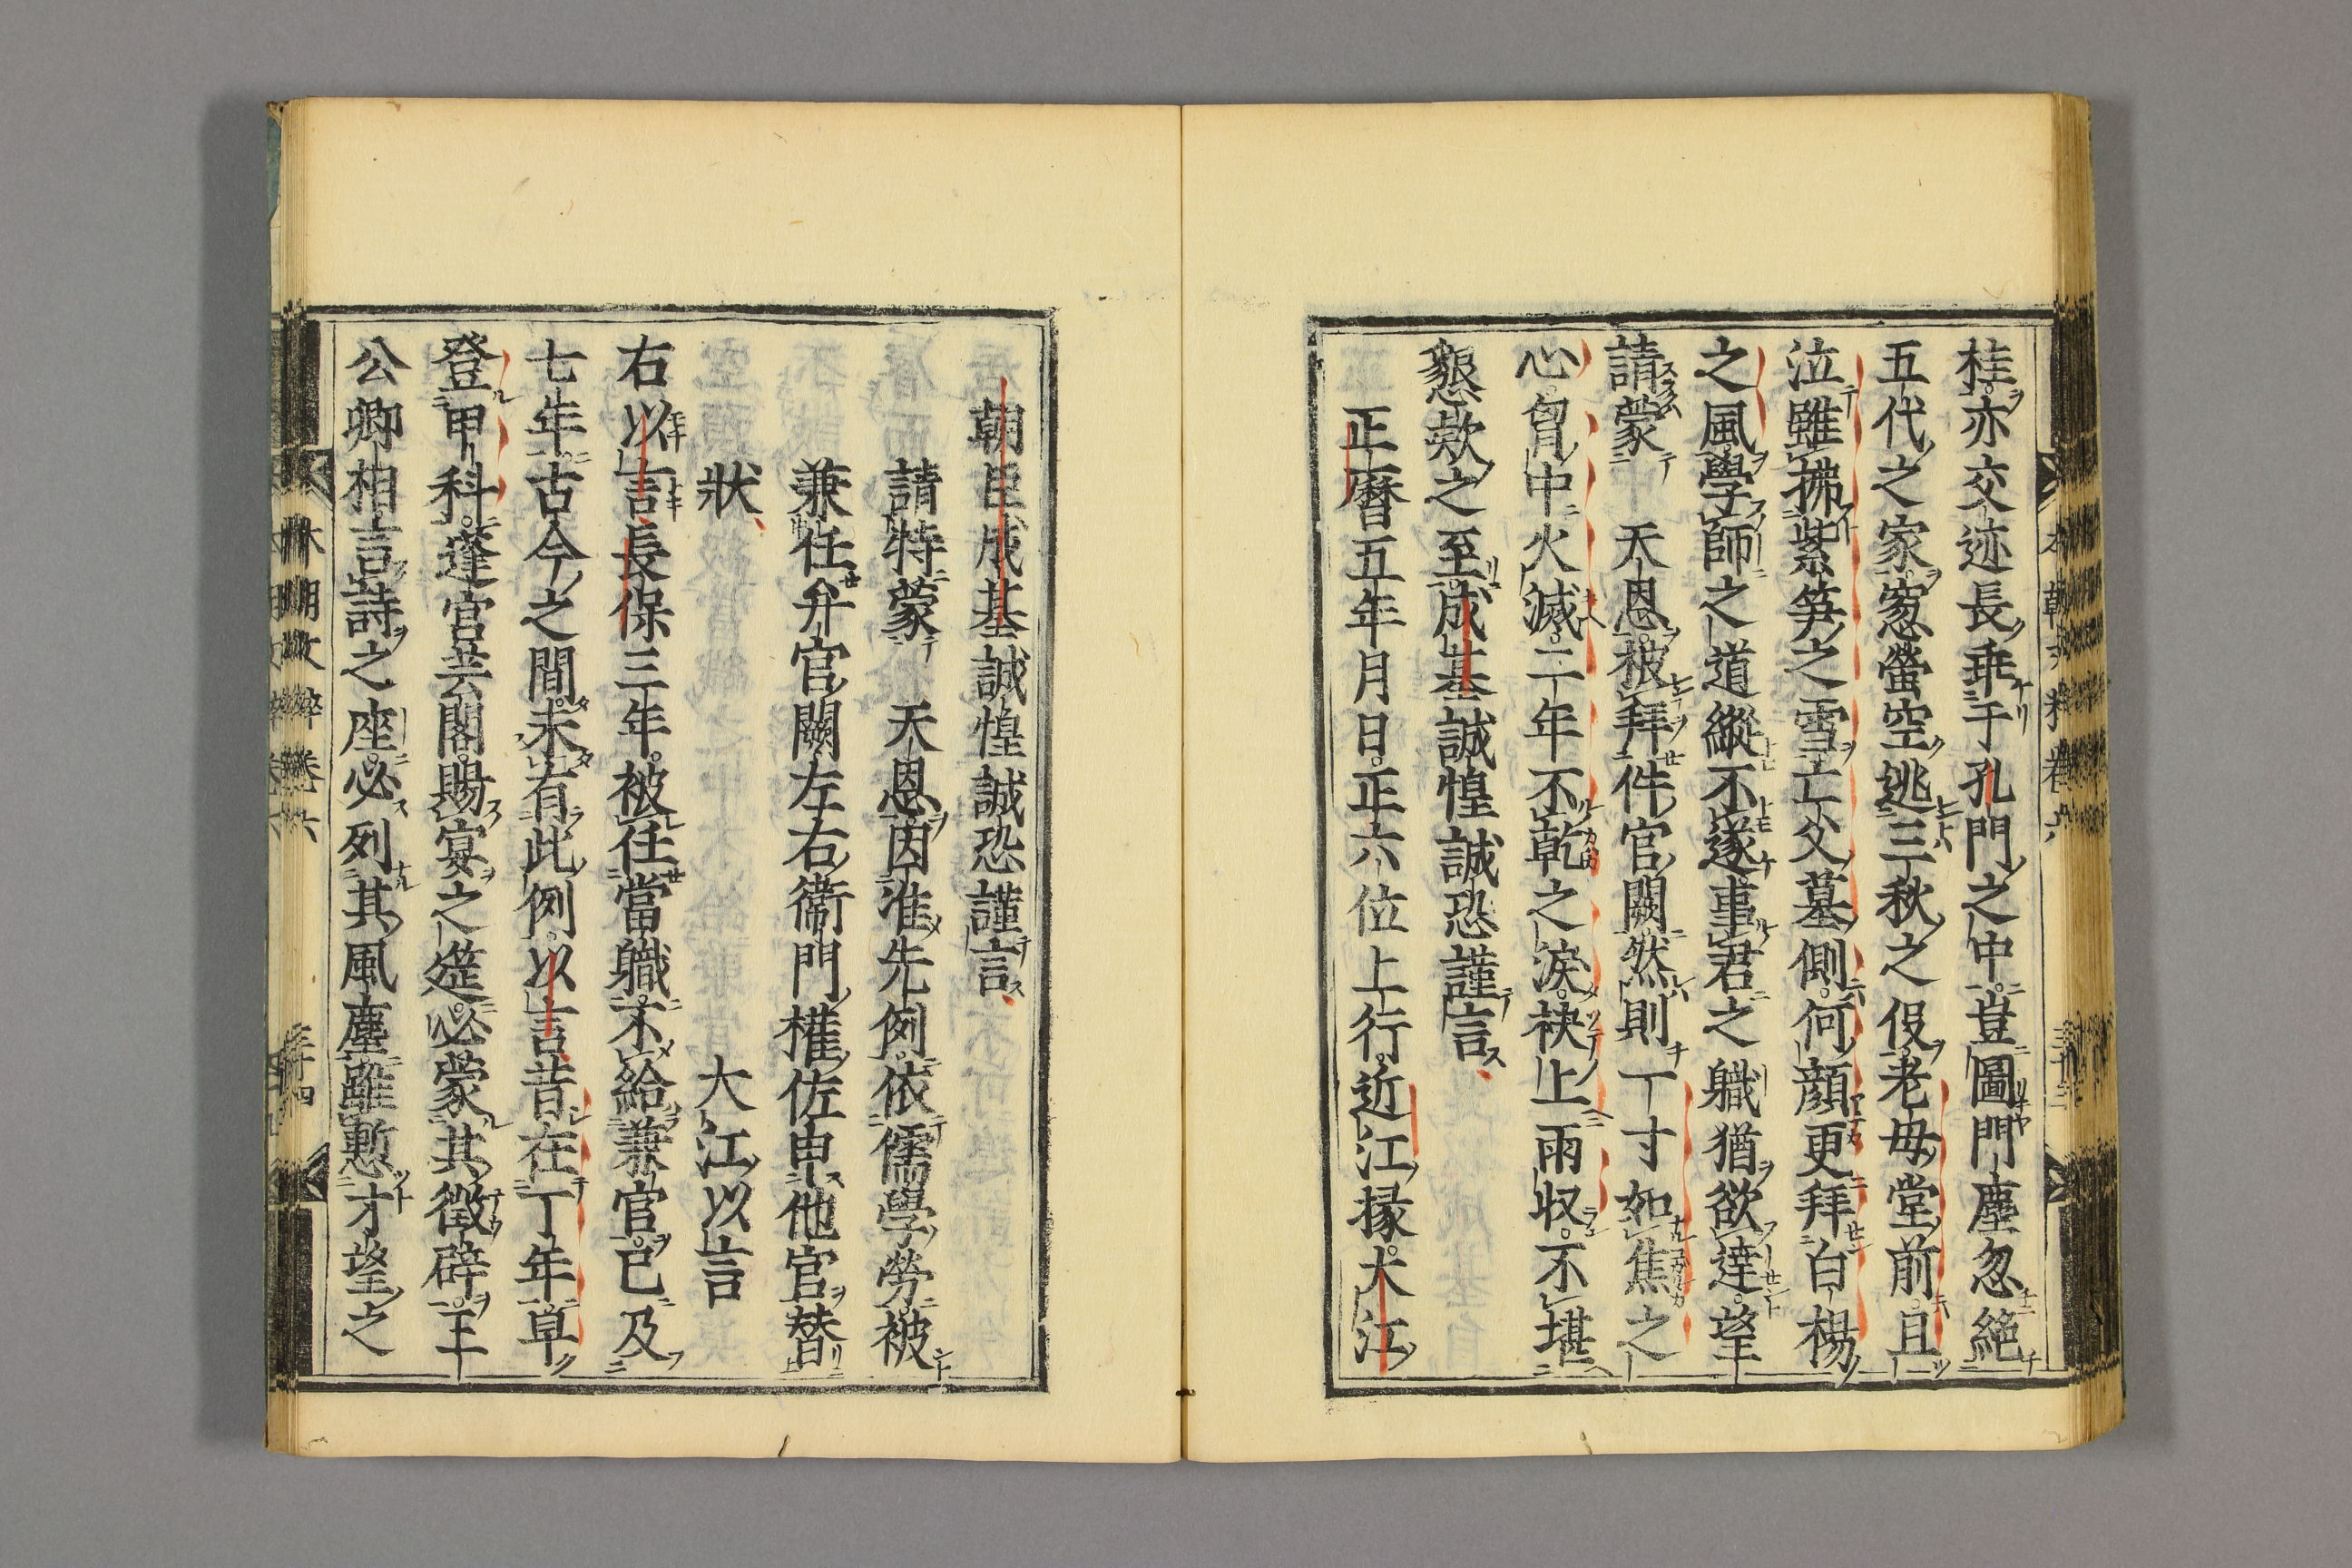 桂亦交迹長乖于孔門之中豈圖門塵忽絕
五代之家窓螢空逃三秋之伇老母堂前且
泣雖拂紫笋之雪亡父墓側何顔更拜白楊
之風學師之道縱不遂事君之職猶欲達望
請蒙　天恩被拜件官闕然則丁寸如焦之
心胷中火滅二年不乾之淚袂上雨收不堪
懇欵之至成基誠惶誠恐謹言
正曆五年月日正六位上行近江掾大江
朝臣成基誠惶誠恐謹言
請特蒙　天恩因准先例依儒學勞被
兼任弁官闕左右衞門權佐申他官替
狀　大江以言
右以言長保三年被任當職不給兼官已及
七年古今之間未有此例以言昔在丁年早
登甲科蓬宮芸閣賜宴之筵必蒙其徵辟王
公卿相言詩之座必列其風塵雖慙才望之
本朝文粹卷六　三十四